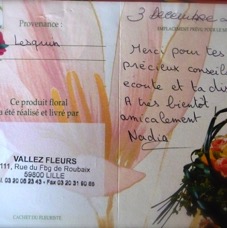 Provenance :
3 Décembre
EMPLACEMENT PRÉVU POUR LE
Lesquin
Merci pour tes
précieux conseil
ecoute et ta di
A très bientôt
amicalement
Nadia
Ce produit floral
a été réalisé et livré par
VALLEZ FLEURS
111, Rue du Fbg de Roubaix
59800 LILLE
CACHET DU FLEURISTE